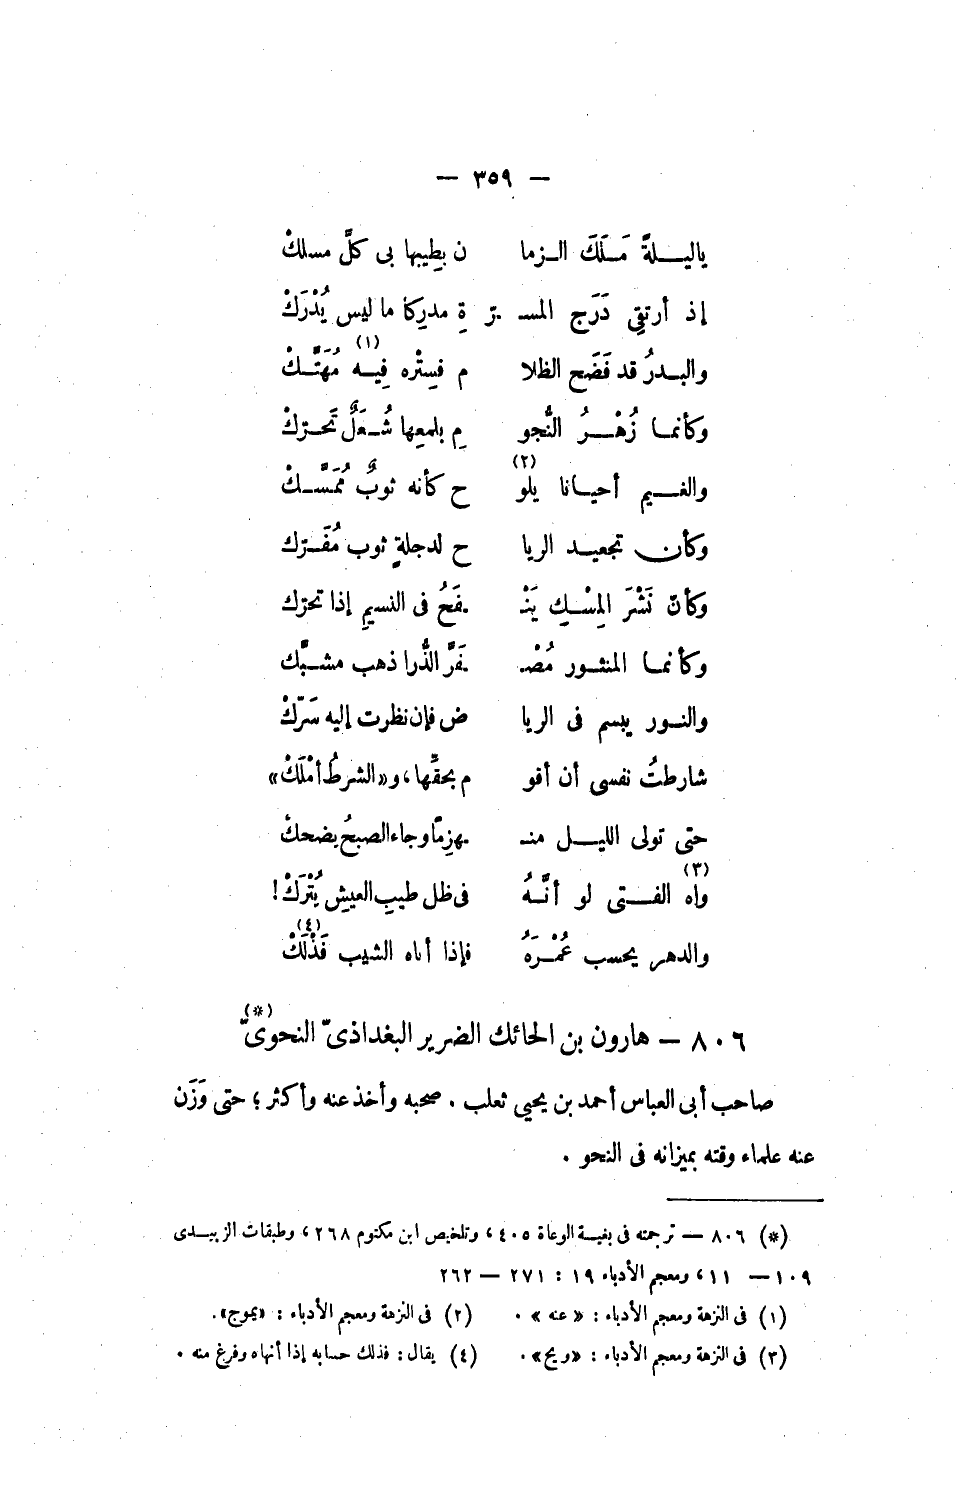 — ٣٥٩ —
ياليلةً مَلَكَ الزما ن بِطيبها بى كلَّ مسلكْ
إذ أرتقِى دَرَج المسـ ـرّ ةِ مدرِكا ما ليس يُدْرَكْ
والبدرُ قد فَضَح الظلا م فسِتْره فِيه (١) مُهَتَّكْ
وكأنما زُهْرُ النُّجو مِ بلمعِها شُعَلٌ تَحرّكْ
والغيم أحيانا يلو (٢) ح كأنه ثوبٌ مُمَسَّكْ
وكأن تجعيد الريا ح لدجلةٍ ثوب مُفَرّك
وكأنّ نَشْرَ المِسْكِ يَنْـ ـفَحُ فى النسيمِ إذا تحرّك
وكأنما المنثور مُصْـ ـفَرَّ الذُّرا ذهب مشبَّك
والنور يبسم فى الريا ض فإن نظرت إليه سَرّكْ
شارطتُ نفسى أن أقو م بحقِّها، و«الشرطُ أمْلَكْ»
حتى تولى الليل منـ ـهزِمًا وجاء الصبحُ يضحكْ
واه (٣) الفتى لو أنَّهُ فى ظل طيبِ العيشِ يُتْرَكْ!
والدهر يحسب عُمْرَهُ فإذا أتاه الشيب فَذْلَكْ (٤)
٨٠٦ — هارون بن الحائك الضرير البغداذىّ النحوىّ (*)
صاحب أبى العباس أحمد بن يحيى ثعلب . صحبه وأخذ عنه وأكثر؛ حتى وَزَن
عنه علماء وقته بميزانه فى النحو .
(*) ٨٠٦ — ترجمته فى بغية الوعاة ٤٠٥، وتلخيص ابن مكتوم ٢٦٨، وطبقات الزبيدى
١٠٩ — ١١، ومعجم الأدباء ١٩ : ٢٧١ — ٢٦٢
(١) فى النزهة ومعجم الأدباء : « عنه » . (٢) فى النزهة ومعجم الأدباء : «يموج».
(٣) فى النزهة ومعجم الأدباء : «ويح». (٤) يقال : فذلك حسابه إذا أنهاه وفرغ منه .